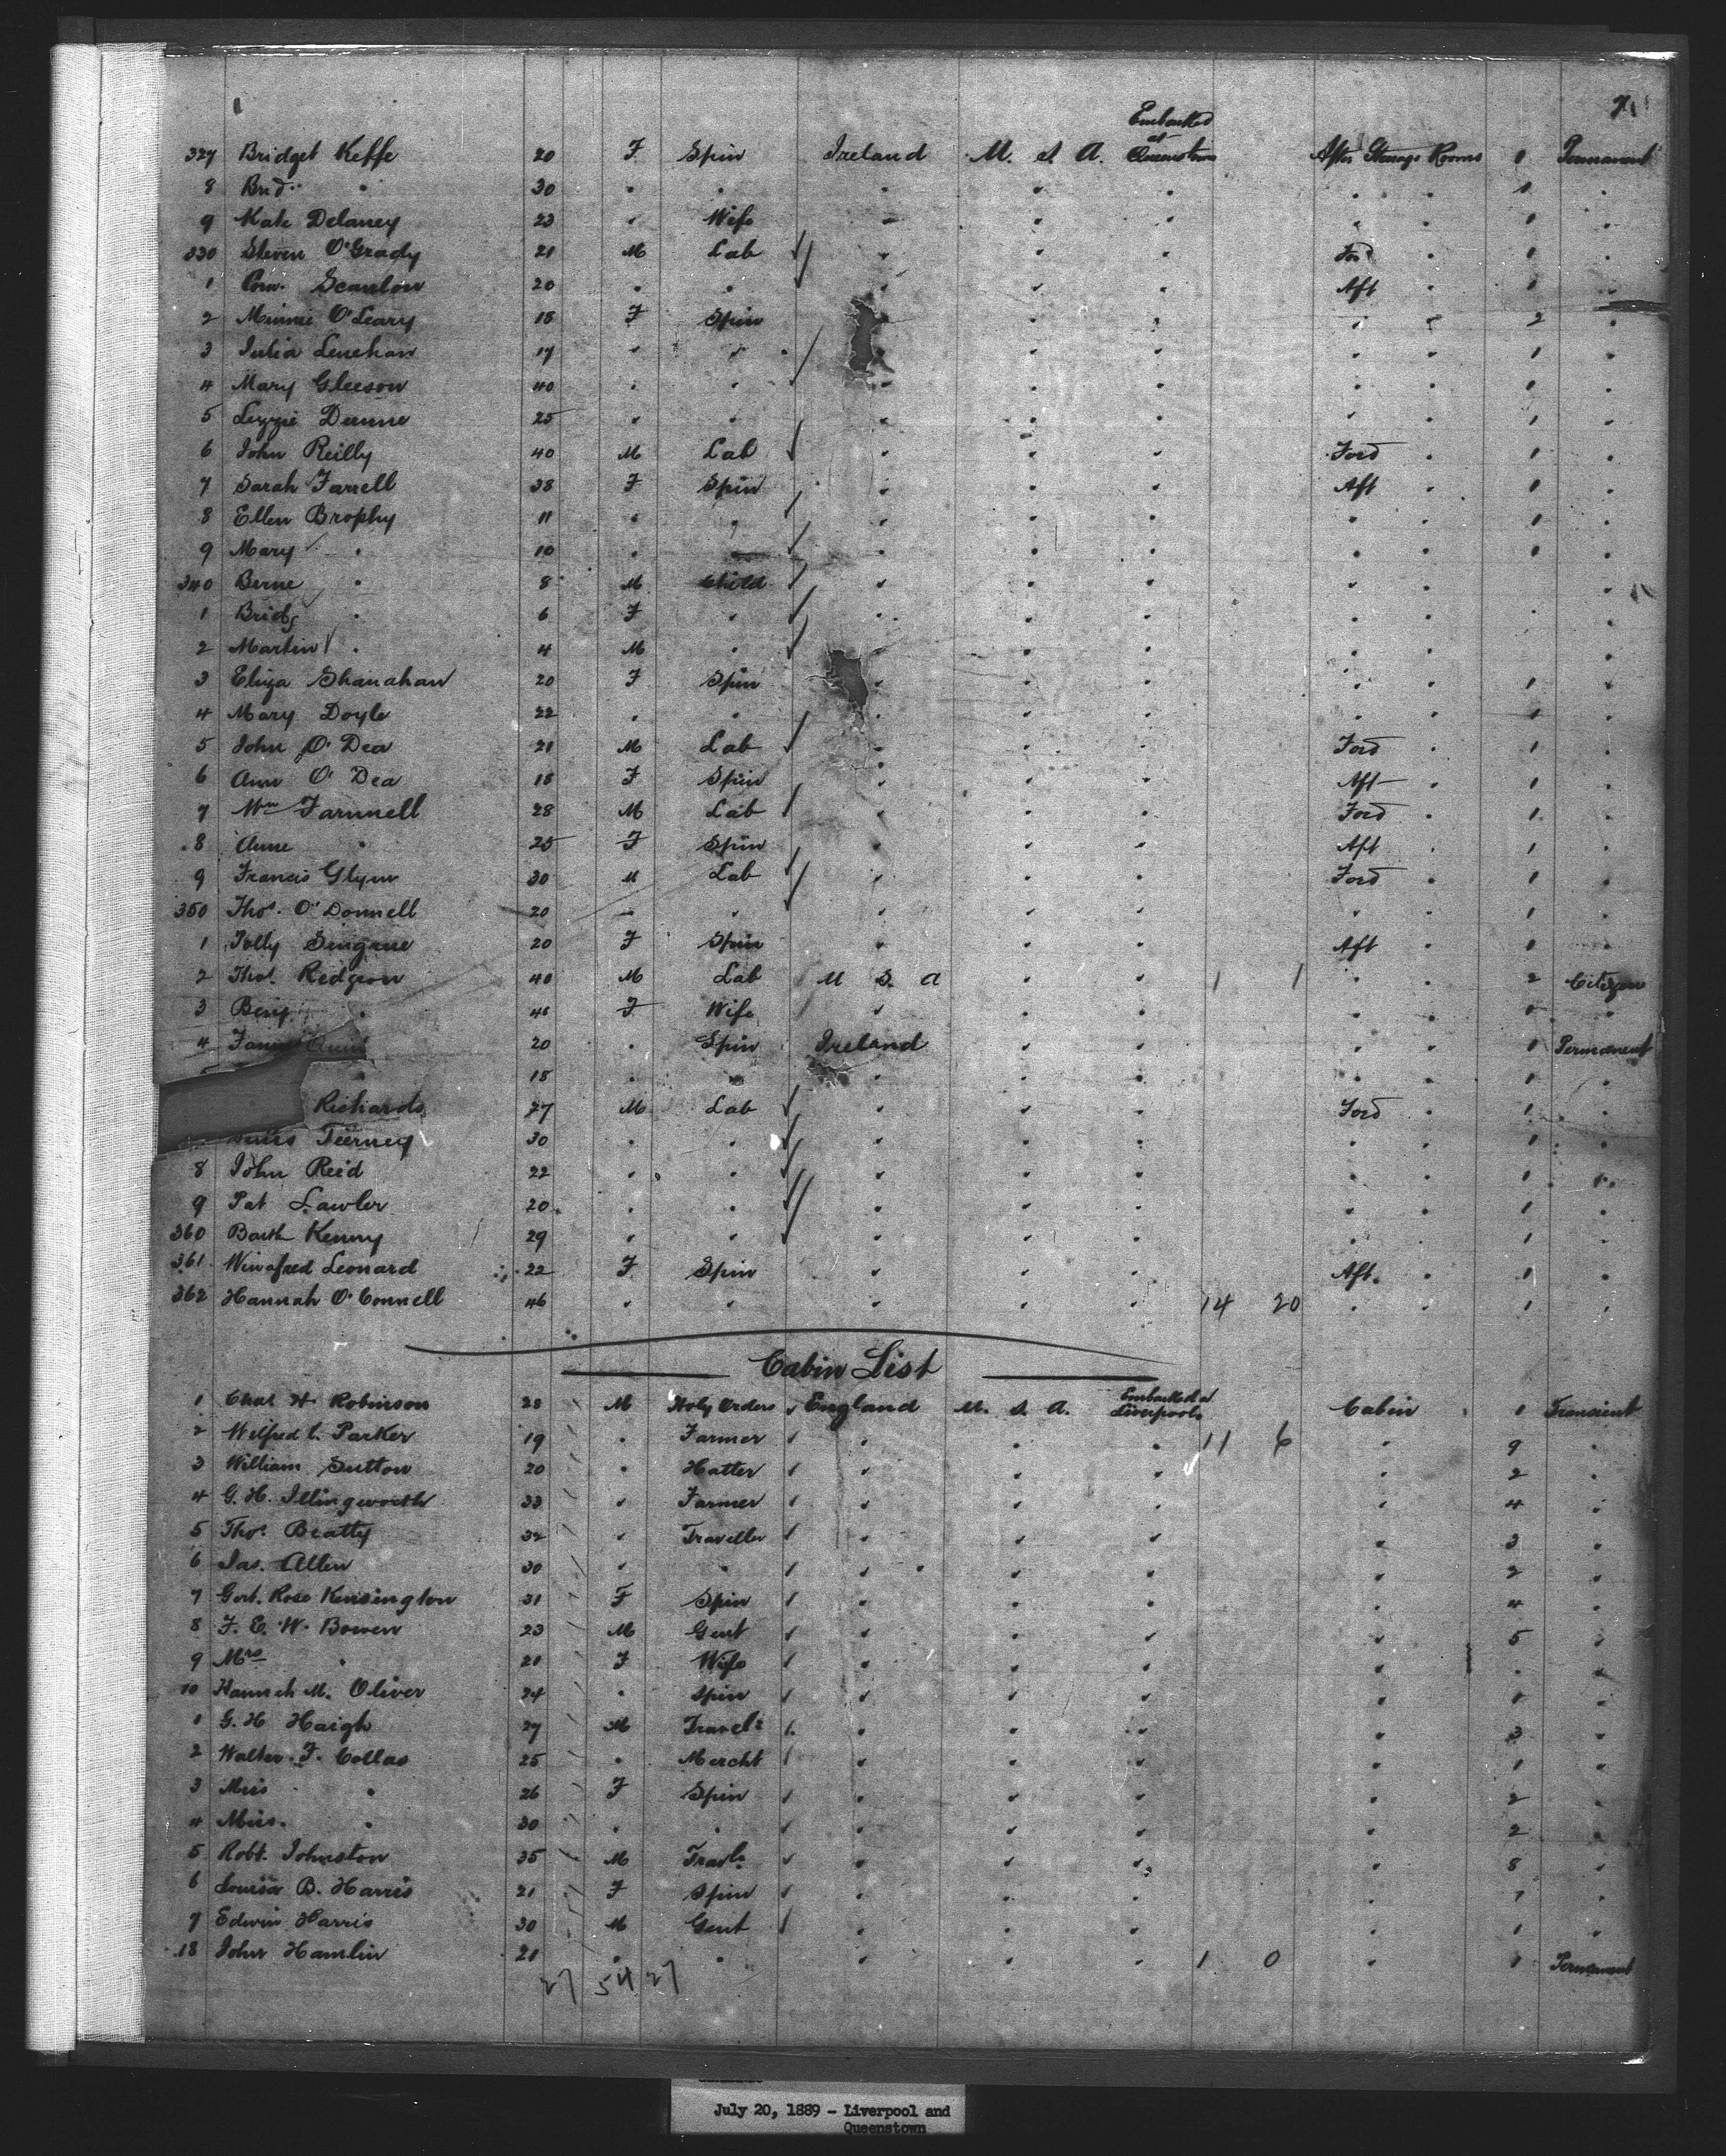 7
Embarked
at
327 Bridget Keffe 20 F Spin Ireland U. S. A. Queenstown After Steerage Rooms 1 Permanent
8 Brid. " 30 " " " " " " " 1 "
9 Kate Delaney 23 " Wife " " " " " 1 "
330 Steven O'Grady 21 M Lab " " " Ford " 1 "
1 Scanlon 20 " " " " " Aft " 1 "
2 Minnie O'Leary 18 F Spin " " " " 2 "
3 Julia Lenehan 17 " " " " " " " 1 "
4 Mary Gleeson 40 " " " " " " " 1 "
5 Lizzie Dunne 25 " " " " " " " 1 "
6 John Reilly 40 M Lab " " " Ford " 1 "
7 Sarah Farrell 38 F Spin " " " Aft " 1 "
8 Ellen Brophy 11 " " " " " " " 1 "
9 Mary " 10 " " " " " " 1 "
340 Berne " 8 M Child " " " " " "
1 Bridg " 6 F " " " " " " "
2 Martin " 4 M " " " " " "
3 Eliza Shanahan 20 F Spin " " " " " 1 "
4 Mary Doyle 22 " " " " " " " 1 "
5 John O'Dea 21 M Lab " " " Ford " 1 "
6 Ann O'Dea 18 F Spin " " " Aft " 1 "
7 Wm Farnnell 28 M Lab " " " Ford " 1 "
8 Anne " 25 F Spin " " " Aft " 1 "
9 Francis Glynn 30 M Lab " " " Ford " 1 "
350 Thos. O'Donnell 20 " " " " " " " 1 "
1 Polly Singane 20 F Spin " " " Aft " 1 "
2 Thos. Redgion 40 M Lab U S. A " " 1 1 " " 2 Citizen
3 " F Wife " " " " " "
4 20 " Spin Ireland " " " " 1 Permanent
18 " " " " " " " 1 "
Richards 27 M Lab " " " Ford " 1 "
Tierney 30 " " " " " " " 1 "
8 John Reid 22 " " " " " " " 1 "
9 Pat Lawler 20 " " " " " " " 1 "
360 Barth Kenny 29 " " " " " " " 1 "
361 Winafred Leonard 22 F Spin " " " Aft. " 1 "
362 Hannah O'Connell 46 " " " " " 14 20 " " 1 "
Cabin List
1 Chas H. Robinson 28 M Holy Orders England U. S. A. Embarked at Liverpool Cabin 1 Transient
2 Wilfred C. Parker 19 " Farmer " " " 11 6 " 9 "
3 William Sutton 20 " Hatter " " " " 2 "
4 G. H. Illingworth 33 " Farmer " " " " 4 "
5 Thos. Beatty 32 " Traveller " " " " 3 "
6 Jas. Allen 30 " " " " " " 2 "
7 Gert. Rose Kensington 31 F Spin " " " " 4 "
8 F. E. W. Bowen 23 M Gent " " " " 5 "
9 Mrs " 21 F Wife " " " " " "
10 Hannah M. Oliver 24 " Spin " " " " 1 "
1 G. H Haigh 27 M Travelr " " " " 3 "
2 Walter. F. Collas 25 " Mercht " " " " 1 "
3 Miss " 26 F Spin " " " " 2 "
4 Miss. " 30 " " " " " " 2 "
5 Robt. Johnston 35 M Travlr " " " " 8 "
6 Louisa B. Harris 21 F Spin " " " " 1 "
7 Edwin Harris 30 M Gent " " " " 1 "
18 John Hamlin 21 " " " " " 1 0 " 1 Permanent
27 54 27
July 20, 1889 - Liverpool and
Queenstown